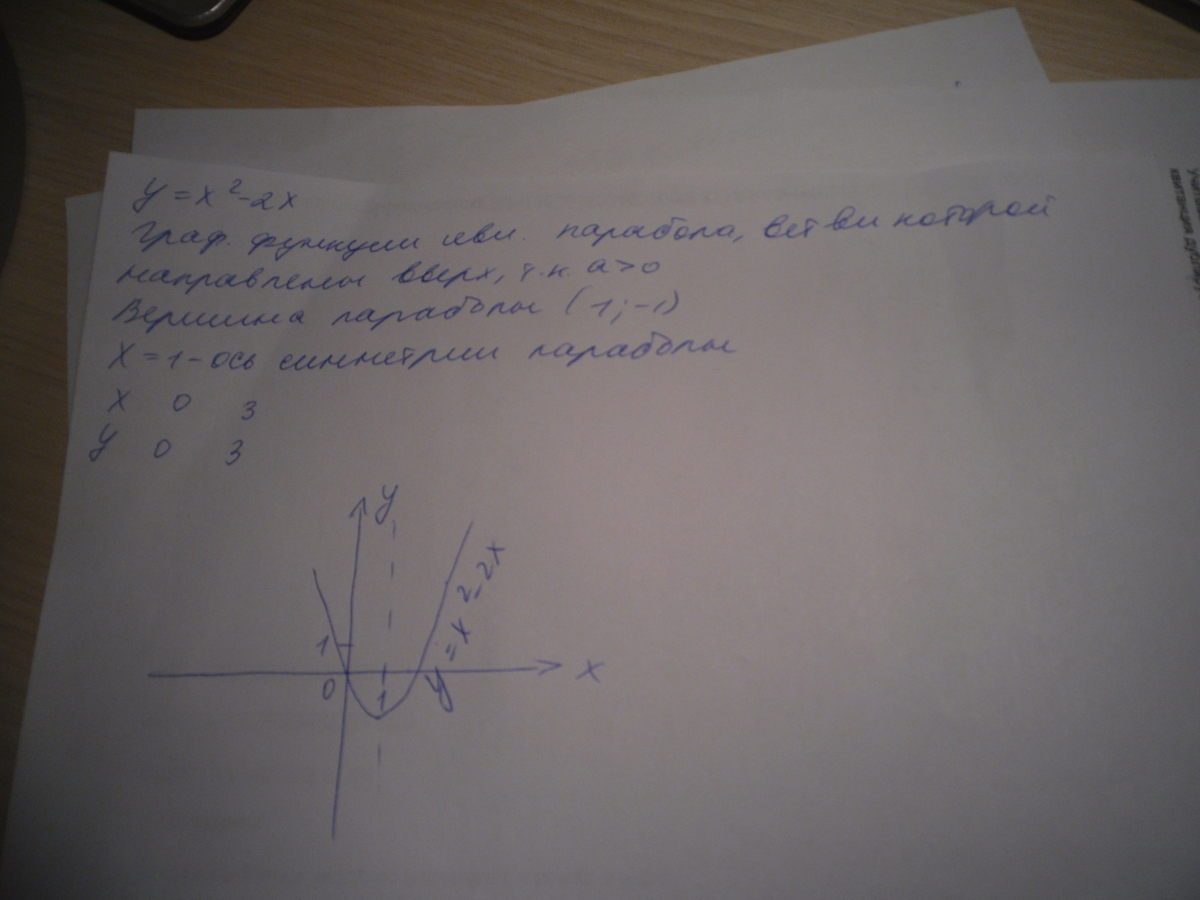 y = x² - 2x
Граф. функции явл. парабола, ветви которой
направлены вверх, т.к. a>0
Вершина параболы (1; -1)
x = 1 - ось симметрии параболы
x 0 3
y 0 3
y
y = x² - 2x
1
x
0
1